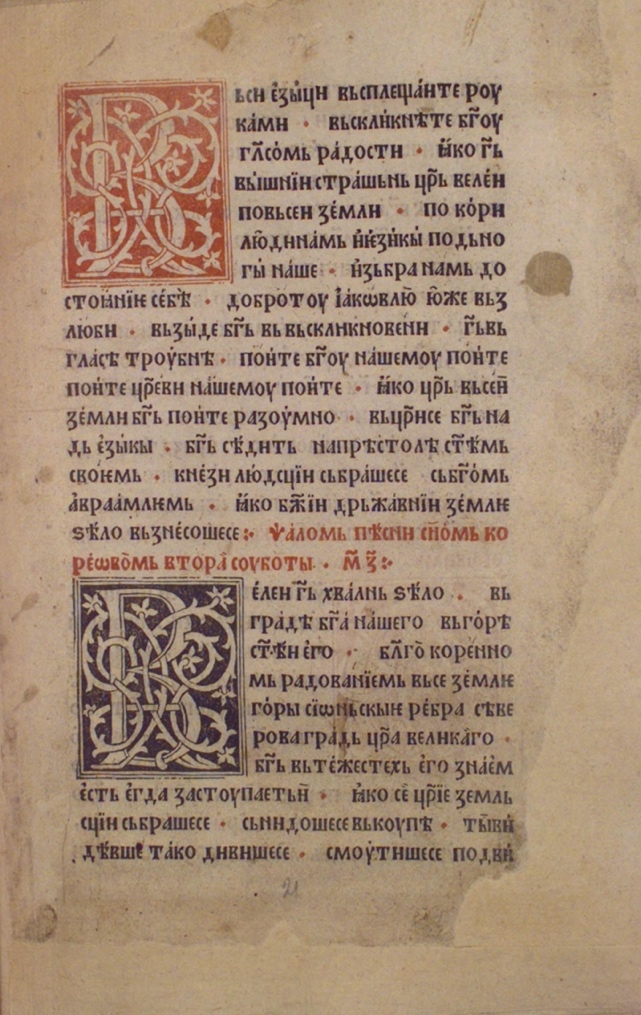 Вьси ѥзы́ци вьсплеща́ите роу
ка́ми • вьскли́кнѣте бг҃оу
гл҃со́мь ра́дости • ꙗ́ко гь҃
вы́шнїи стра́шьнь цр҃ь веле́и
по вьсеи зе́мли • по ко́ри
лю́ди на́мь и ѥзи́кы подьно
гы́ на́ше • и́зьбра намь до
стоꙗ́нїѥ се́бѣ • доброт оу їа́кѡвлю ю́же вьз
люби • вьзы́де бг҃ь вь вьскликновени • гь҃ вь
гла́сѣ троу́бнѣ • по́ите бг҃оу на́шемоу по́ите
по́ите цр҃еви на́шемоу по́ите • ꙗ́ко цр҃ь вьсеи
зе́мли бг҃ь по́ите разоу́мно • вьцр҃исе бг҃ь на
дь ѥзы́кы • бг҃ь сѣ́дить на прѣстолѣ ст҃ѣмь
своѥмь • кнѣ́зи лю́дсцїи сьбра́шесе сьбг҃о́мь
а́враа́млѥмь • ꙗ́ко бж҃їи дрьжа́внїи зе́млѥ
ѕѣ́ло вьзне́сошесе ⁘ ѱа́ломь пѣ́сни сн҃о́мь ко
ре́ѡво̀мь втора́ соуботы • м҃з ⁘
Ве́леи гь҃ хва́льнь ѕѣ́ло • вь
гра́дѣ бг҃а́ на́шего вь го́рѣ
ст҃ѣ́и ѥго • бл҃го̀ коре́нно
мь радова́нїемь вьсе зе́млѥ
го́ры сїѡ́ньскыѥ ре́бра сѣве
рова гра́дь цр҃а вели́ка́го •
бг҃ь вь те́жестехь ѥго зна́ѥм
ѥ́сть ѥ́гда застоупаѥть и̑ • ꙗ́ко се́ цр҃їе земль
сцїи сьбрашесе • сьнидошесе вькоу́пѣ • ты́ ви́
дѣ́вше та́ко диви́шесе • смоу́тишесе подви́
21